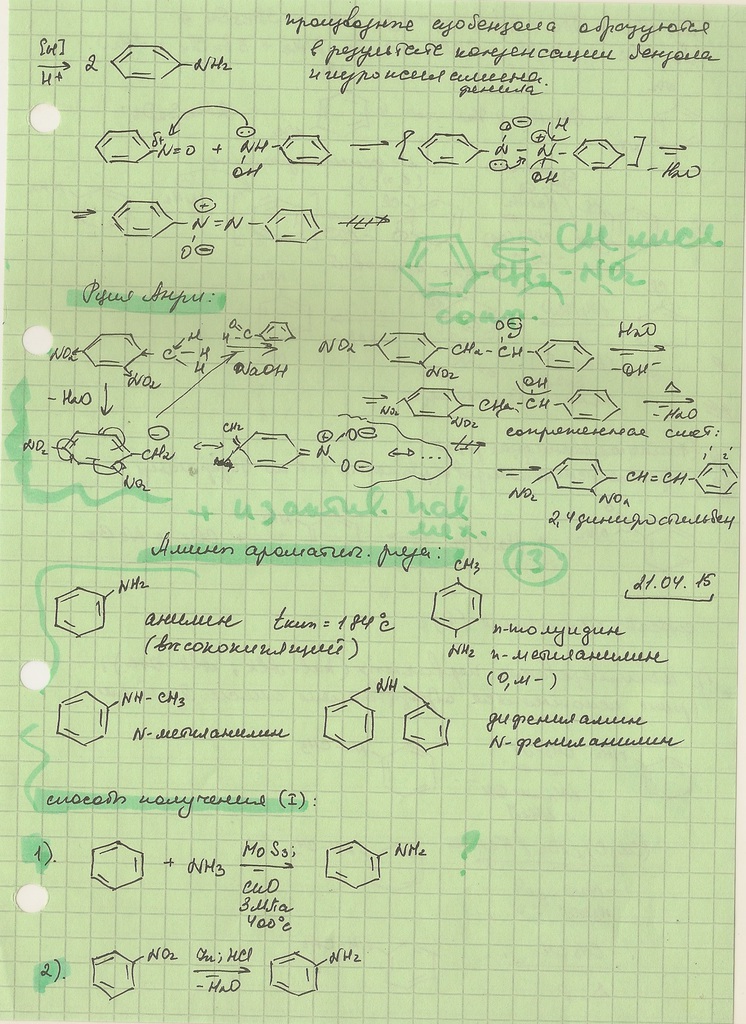 производные азобензола образуются
в результате конденсации бензола
и гидроксиламина.
фенила
[H]
H+
2
NH2
δ+
N=O + NH
OH
⇌ { O⊖ N ⊕ N H OH } ⇌
-H2O
⇌ ⊕ N=N
O⊖
CH кисл.
CH2-NO2
сопр.
Р-ция Анри:
NO2
NO2
C H H H
H C O
NaOH
NO2 CH2-CH
NO2
O⊖
H2O
-OH-
-H2O
NO2
NO2 CH2-CH
OH
Δ
-H2O
сопряженная сист:
NO2
CH2⊖
NO2
↔
CH2
=N
⊕
O⊖
O⊖
↔ ...
NO2 NO2 CH=CH
1' 2'
2,4 динитростильбен
+
мех.
Амины ароматич. ряда:
13
21.04.15
NH2
анилин tкип = 184°C
(высококипящий)
CH3
NH2
п-толуидин
п-метиланилин
(о, м-)
NH-CH3
N-метиланилин
NH
дифениламин
N-фениланилин
способы получения (I):
1).
+ NH3
MoS3;
CuO
3МПа
400°C
NH2
?
2).
NO2
Zn; HCl
-H2O
NH2